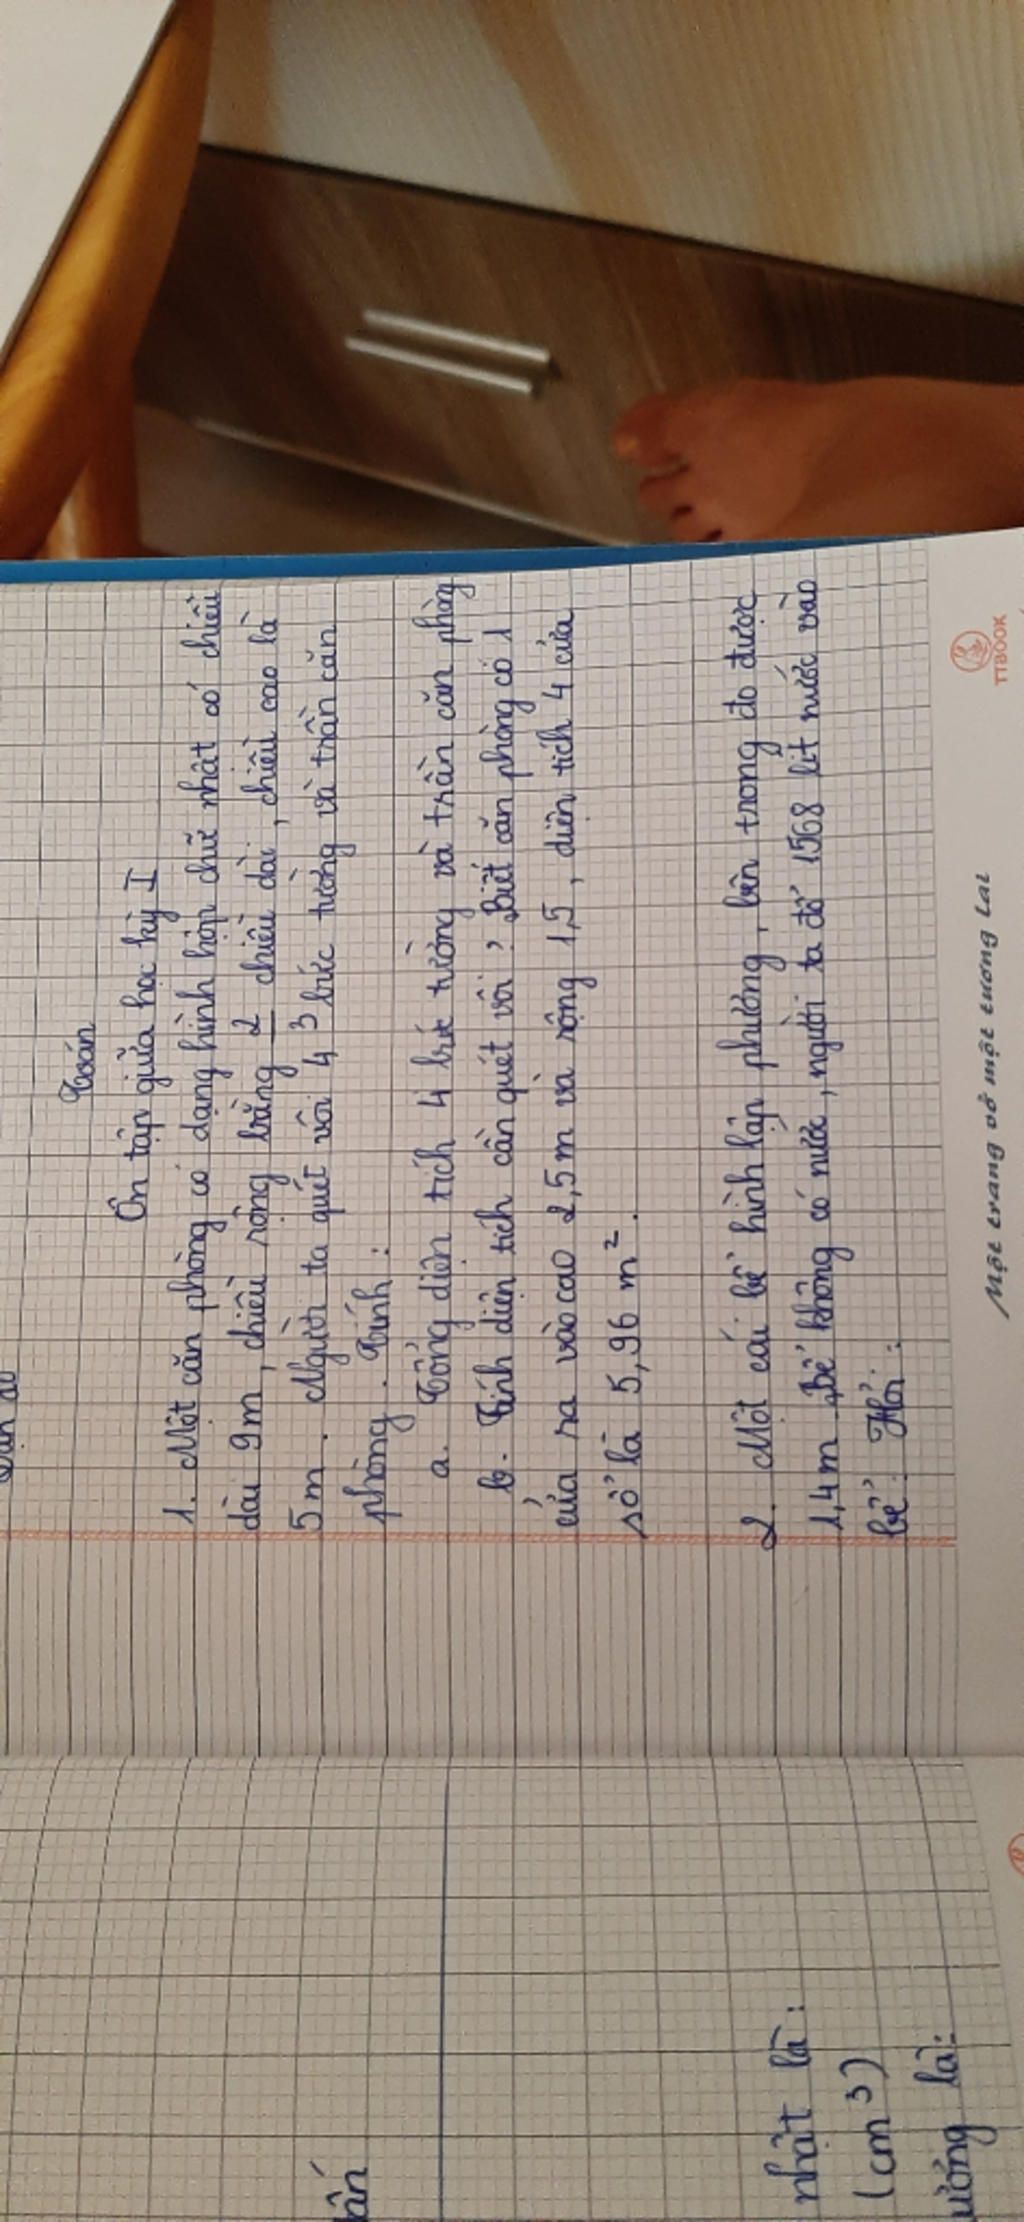 Toán
Ôn tập giữa học kỳ I
1. Một căn phòng có dạng hình hộp chữ nhật có chiều
dài 9m, chiều rộng bằng 2/3 chiều dài, chiều cao là
5m. Người ta quét vôi 4 bức tường và trần căn
phòng. Tính:
a. Tổng diện tích 4 bức tường và trần căn phòng
b. Tính diện tích cần quét vôi? Biết căn phòng có 1
cửa ra vào cao 2,5m và rộng 1,5, diện tích 4 cửa
sổ là 5,96 m².
2. Một cái bể hình lập phương, bên trong đo được
1,4m. Bể không có nước, người ta đổ 1568 lít nước vào
bể. Hỏi:
Một trang vở một tương lai
TTBOOK
nhật là:
(cm³)
là: